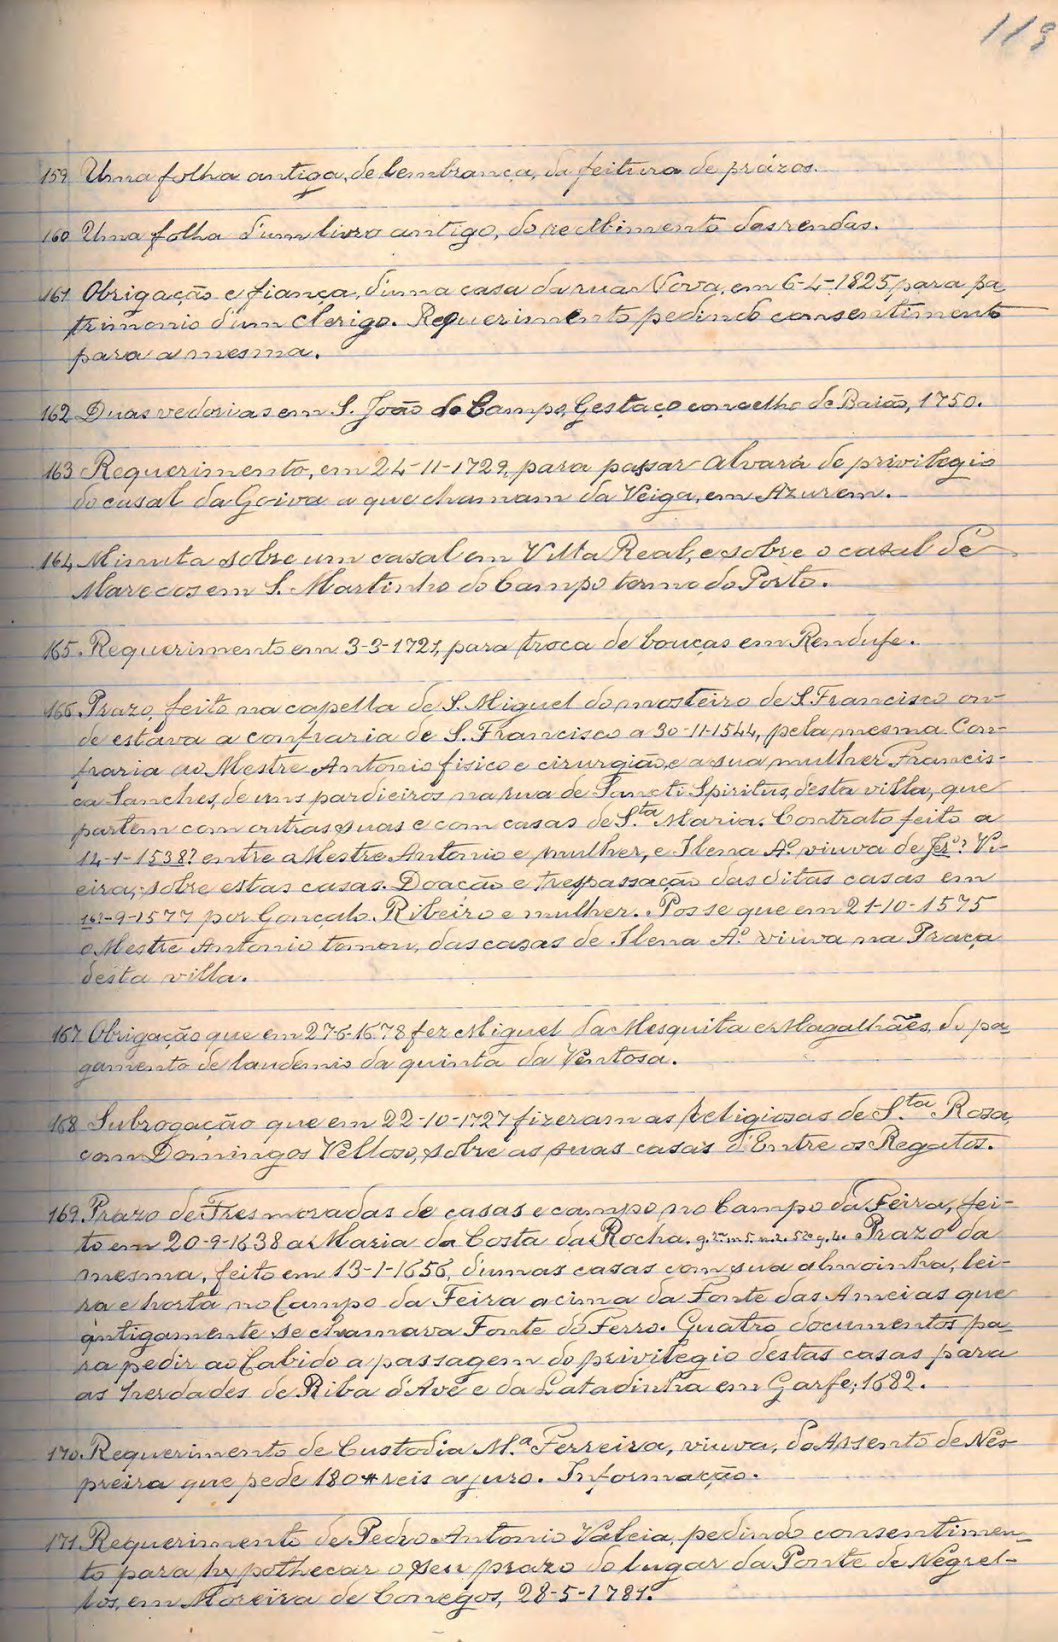 113
159 Uma folha antiga, de lembrança, da feitura de prázos.
160 Uma folha d'um livro antigo, do recebimento das rendas.
161 Obrigação e fiança, d'uma casa da rua Nova, em 6-4-1825 para pa-
trimonio d'um clerigo. Requerimento pedindo consentimento
para a mesma.
162 Duas vedorias em S. João do Campo, Gestaço concelho de Baião, 1750.
163 Requerimento, em 24-11-1729, para passar alvará do privilegio
do casal da Goiva a que chamam da Veiga, em Azurem.
164 Minuta sobre um casal em Villa Real, e sobre o casal de
Marecos em S. Martinho do Campo termo do Porto.
165. Requerimento em 3-3-1721, para troca de bouças em Rendufe.
166. Prazo, feito na capella de S. Miguel do mosteiro de S. Francisco on-
de estava a confraria de S. Francisco a 30-11-1544, pela mesma Con-
fraria ao Mestre Antonio fisico e cirurgião, e a sua mulher Francis-
ca Sanches, de uns pardieiros na rua de Sancti Spiritus, desta villa, que
partem com outras suas e com casas de S.ta Maria. Contrato feito a
14-1-1538? entre a Mestre Antonio e mulher, e Ilena A.º viuva de Jer.º? Vi-
eira, sobre estas casas. Doação e trespassação das ditas casas em
-9-1577 por Gonçalo Ribeiro e mulher. Posse que em 21-10-1575
o Mestre Antonio tomou, das casas de Ilena A.º viuva na Praça
desta villa.
167 Obrigação que em 27-6-1678 fez Miguel da Mesquita e Magalhães, do pa-
gamento de laudemio da quinta da Ventosa.
168 Subrogação que em 22-10-1727 fizeram as Religiosas de S.ta Rosa,
com Domingos Velloso, sobre as suas casas d'Entre os Regatos.
169. Prazo de Tres moradas de casas e campo, no Campo da Feira, fei-
to em 20-9-1638 a Maria da Costa da Rocha, Prazo da
mesma, feito em 13-1-1656, d'umas casas com sua almoinha, lei-
ra e horta no Campo da Feira acima da Fonte das Ameias que
antigamente se chamava Fonte do Ferro. Quatro documentos pa-
ra pedir ao Cabido a passagem do privilegio destas casas para
as herdades de Riba d'Ave e da Latadinha em Garfe; 1682.
170. Requerimento de Custodia M.ª Ferreira, viuva, do Assento de Nes-
preira que pede 180# reis a juro. Informação.
171. Requerimento de Pedro Antonio Valeia, pedindo consentimen-
to para hypothecar o seu prazo do lugar da Ponte de Negrel-
los, em Moreira de Conegos, 28-5-1781.